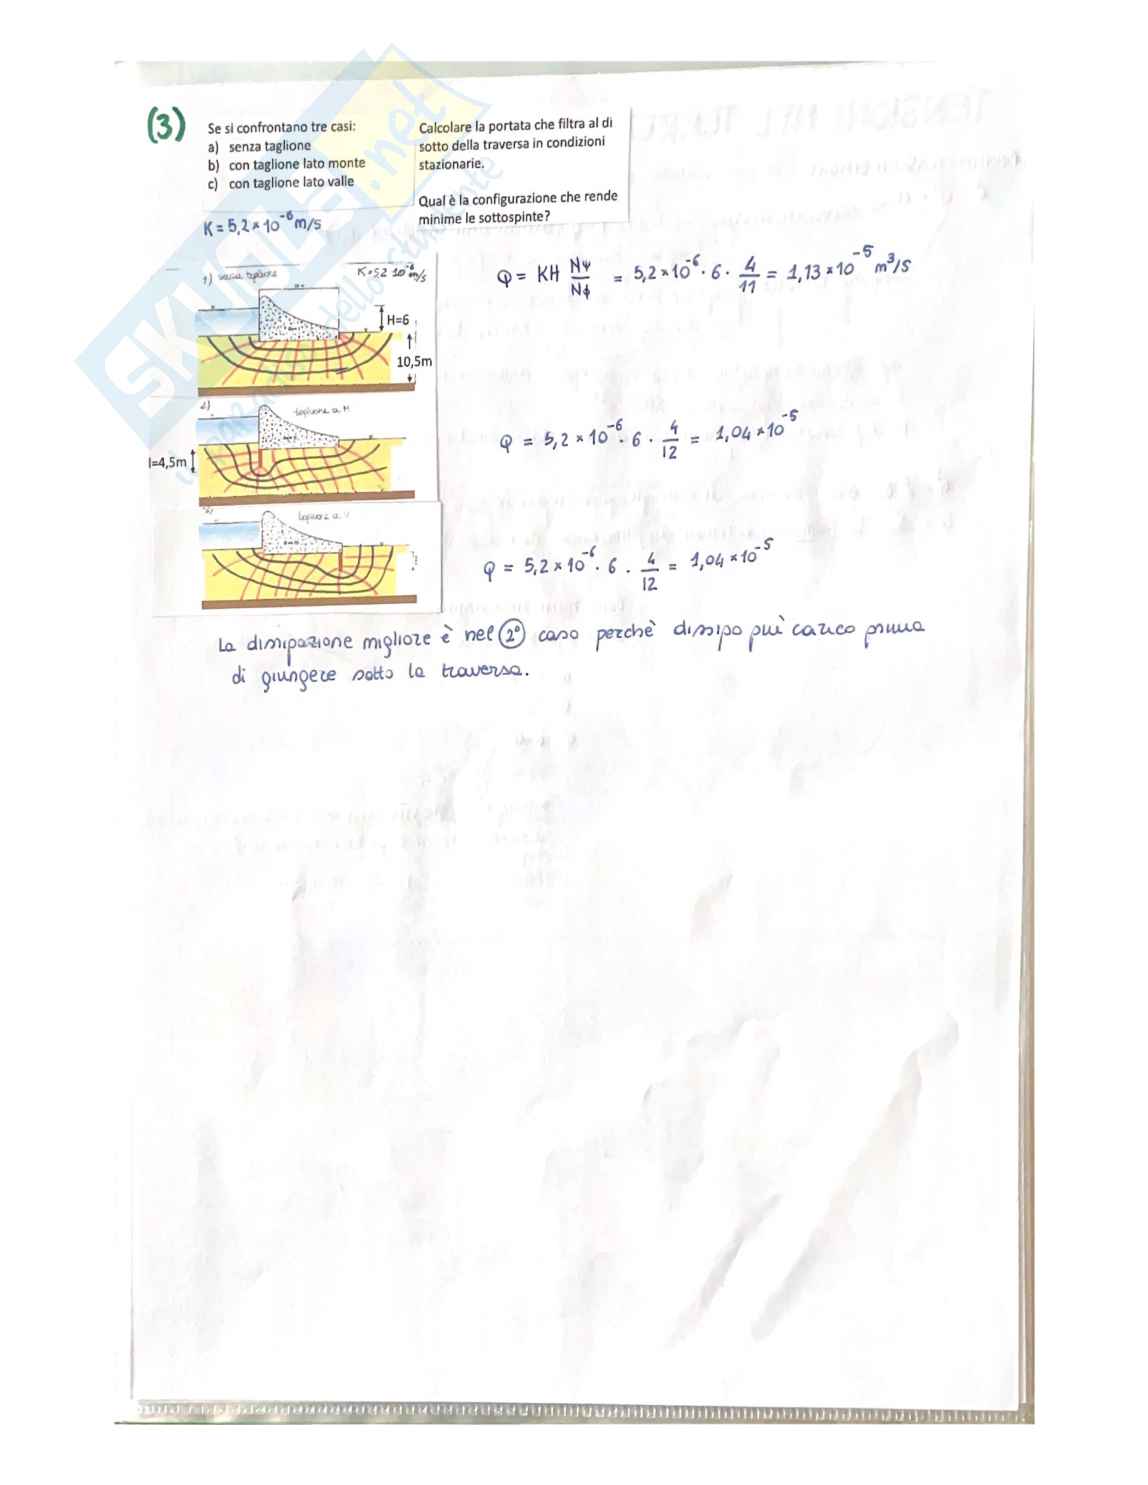 (3)
Se si confrontano tre casi:
a) senza taglione
b) con taglione lato monte
c) con taglione lato valle
Calcolare la portata che filtra al di
sotto della traversa in condizioni
stazionarie.
Qual è la configurazione che rende
minime le sottospinte?
K = 5,2 * 10^-6 m/s
1) senza taglione
K=5,2 10^-6 m/s
H=6
10,5m
Q = KH Nψ/Nϕ = 5,2*10^-6 · 6 · 4/11 = 1,13*10^-5 m³/s
2)
taglione a M
l=4,5m
Q = 5,2 * 10^-6 · 6 · 4/12 = 1,04*10^-5
taglione a V
Q = 5,2*10^-6 · 6 · 4/12 = 1,04*10^-5
La dissipazione migliore è nel 2° caso perchè dissipo più carico prima
di giungere sotto la traversa.
SKUOLA.net